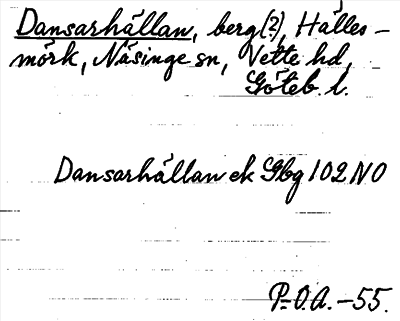 Dansarhällan, berg(?), Hälles-
mörk, Näsinge sn, Vette hd,
Göteb. l.
Dansarhällan ek Gbg 102 NO
P-O.A. -55.